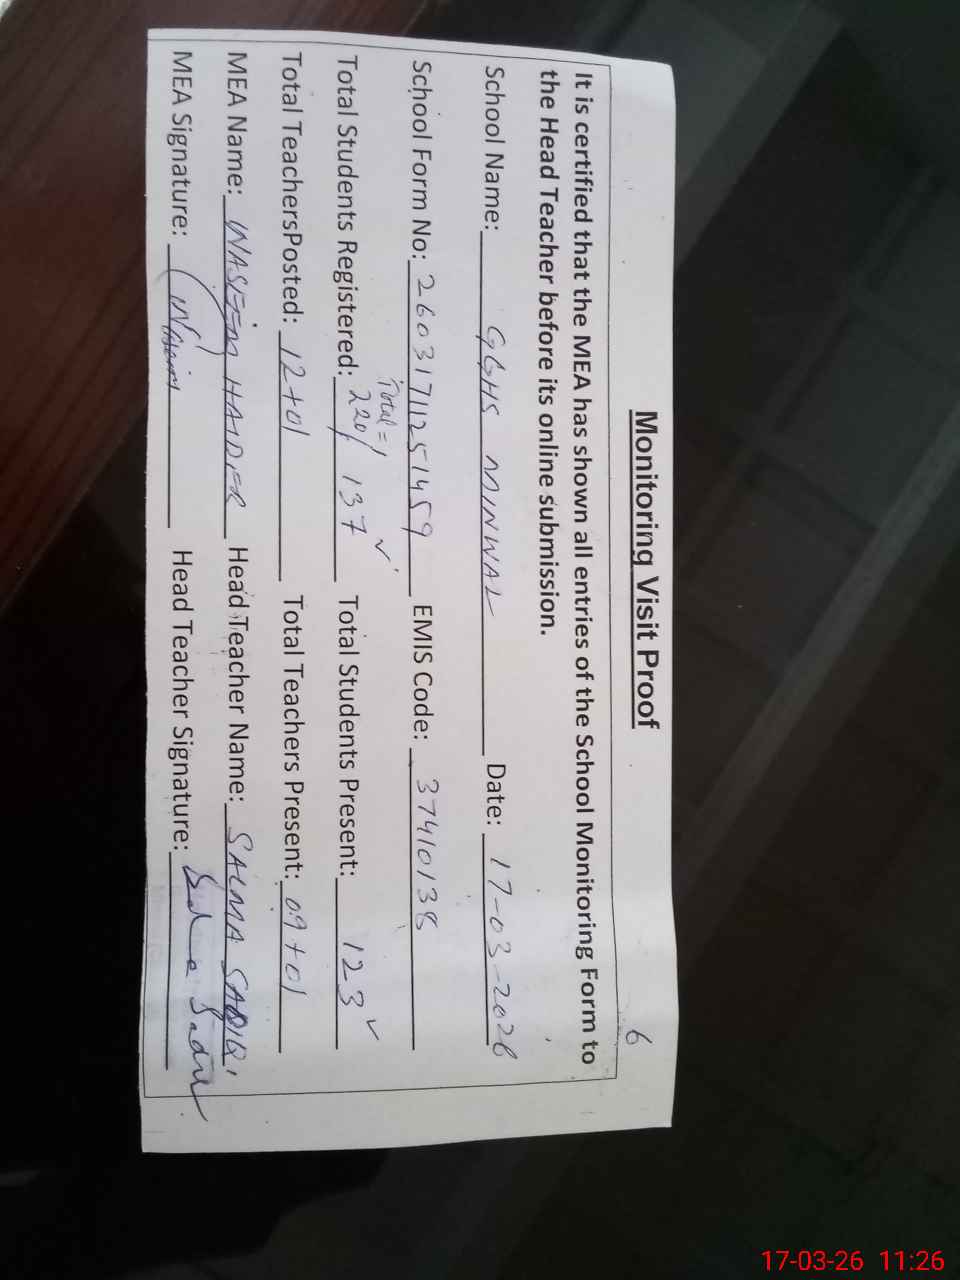 6
Monitoring Visit Proof
It is certified that the MEA has shown all entries of the School Monitoring Form to
the Head Teacher before its online submission.
School Name: GGHS MINWAL Date: 17-03-2026
School Form No: 26031711251459 EMIS Code: 37410138
Total =
Total Students Registered: 220/ 137 ✓ Total Students Present: 123 ✓
Total TeachersPosted: 12+01 Total Teachers Present: 09+01
MEA Name: WASEEM HAIDER Head Teacher Name: SALMA SADIQ
MEA Signature: (Wasim Head Teacher Signature:
17-03-26 11:26